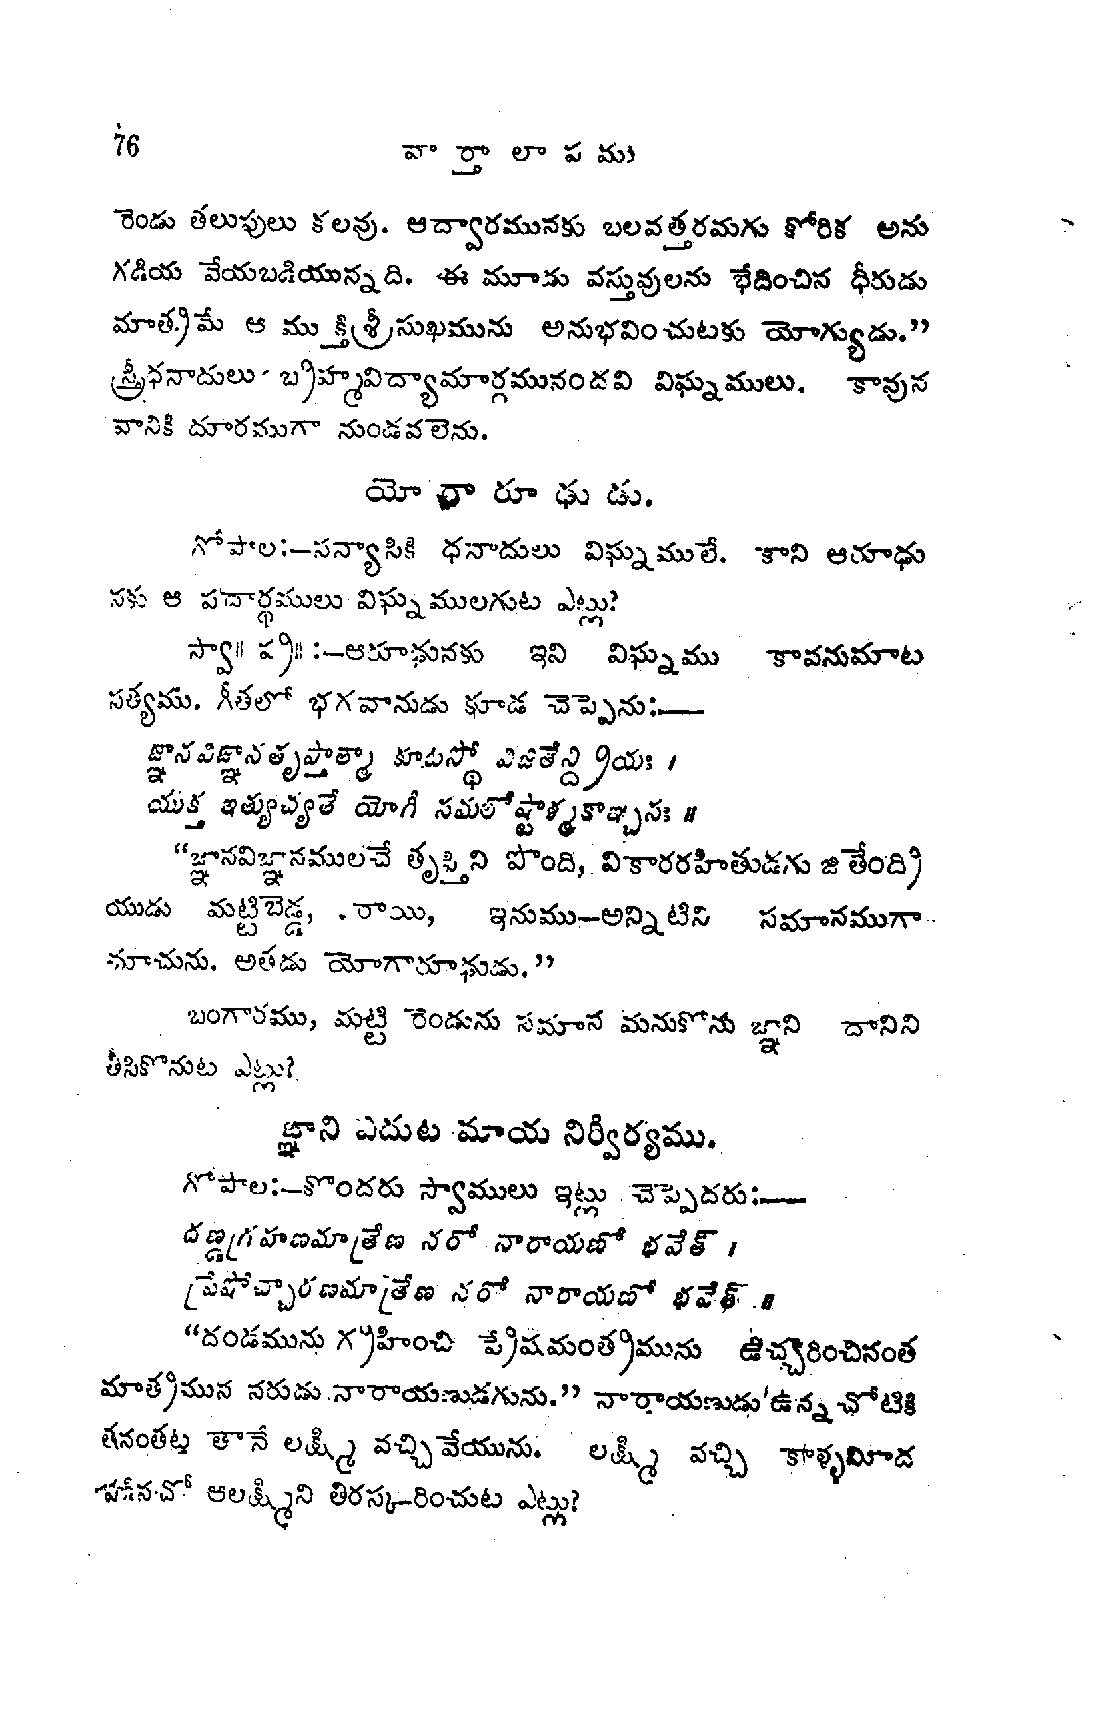 76
వార్తాలాపము
రెండు తలుపులు కలవు. ఆద్వారమునకు బలవత్తరమగు కోరిక అను
గడియ వేయబడియున్నది. ఈ మూడు వస్తువులను భేదించిన ధీరుడు
మాత్రమే ఆ ముక్తిశ్రీసుఖమును అనుభవించుటకు యోగ్యుడు.”
స్త్రీధనాదులు బ్రహ్మవిద్యామార్గమునందవి విఘ్నములు. కావున
వానికి దూరముగా నుండవలెను.
యోగారూఢుడు.
గోపాల:—సన్యాసికి ధనాదులు విఘ్నములే. కాని ఆరూఢు
నకు ఆ పదార్థములు విఘ్నములగుట ఎట్లు?
స్వా॥ ప్ర॥ :—ఆరూఢునకు ఇవి విఘ్నము కావనుమాట
సత్యము. గీతలో భగవానుడు కూడ చెప్పెను:—
జ్ఞానవిజ్ఞానతృప్తాత్మా కూటస్థో విజితేన్ద్రియః ।
యుక్త ఇత్యుచ్యతే యోగీ సమలోష్టాశ్మకాఞ్చనః ॥
“జ్ఞానవిజ్ఞానములచే తృప్తిని పొంది, వికారరహితుడగు జితేంద్రి
యుడు మట్టిబెడ్డ, రాయి, ఇనుము—అన్నిటిని సమానముగా
చూచును. అతడు యోగారూఢుడు.”
బంగారము, మట్టి రెండును సమాన మనుకొను జ్ఞాని దానిని
తీసికొనుట ఎట్లు?
జ్ఞాని ఎదుట మాయ నిర్వీర్యము.
గోపాల:—కొందరు స్వాములు ఇట్లు చెప్పెదరు:—
దణ్డగ్రహణమాత్రేణ నరో నారాయణో భవేత్ ।
ప్రేషోచ్చారణమాత్రేణ నరో నారాయణో భవేత్ ॥
“దండమును గ్రహించి ప్రేషమంత్రమును ఉచ్చరించినంత
మాత్రమున నరుడు నారాయణుడగును.” నారాయణుడు ఉన్న చోటికి
తనంతట తానే లక్ష్మి వచ్చివేయును. లక్ష్మి వచ్చి కాళ్ళమీద
పడినచో ఆలక్ష్మిని తిరస్కరించుట ఎట్లు?